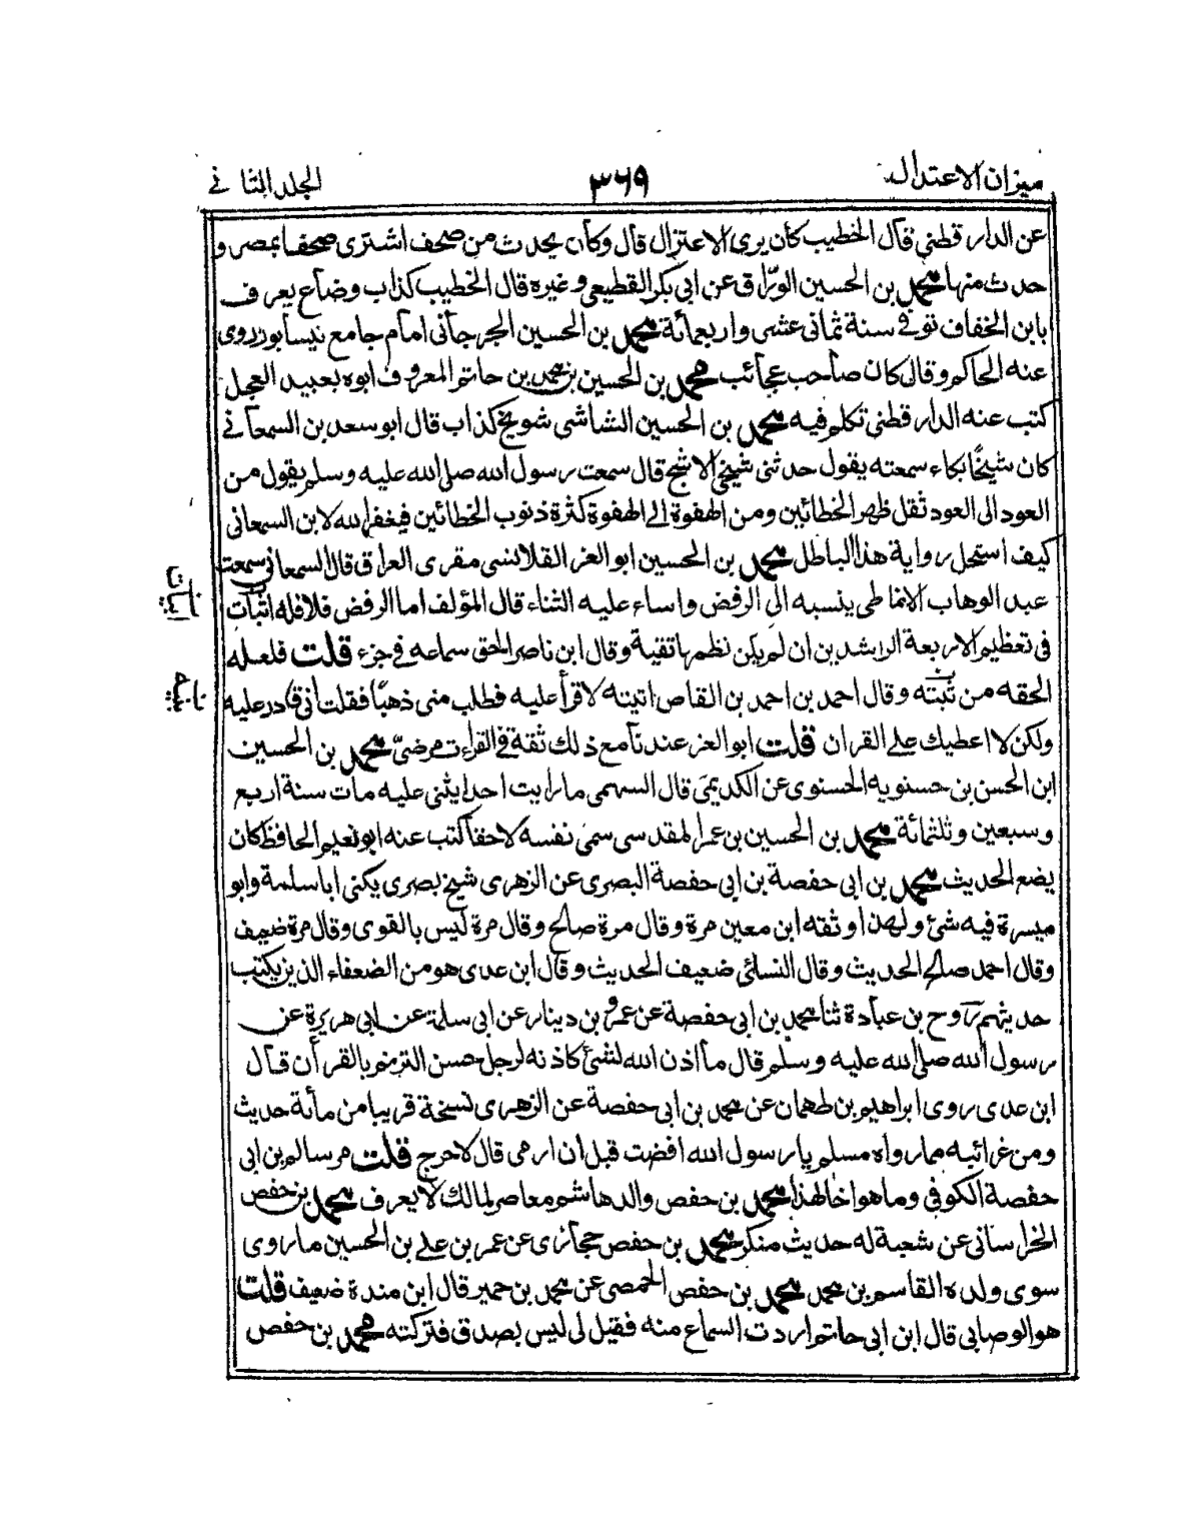 ميزان الاعتدال
٣٦٩
الجلد الثاني
عن الدارقطني قال الخطيب كان يرى الاعتزال قال وكان يحدث من صحف اشترى صحفا بمصر و
حدث منها محمد بن الحسين الورّاق عن ابى بكر القطيعى وغيره قال الخطيب كذاب وضاع يعرف
بابن الخفاف توفي سنة ثمانى عشر واربعمائة محمد بن الحسين الجرجانى امام جامع نيسابور روى
عنه الحاكم وقال كان صاحب عجائب محمد بن الحسين بن محمد بن حاتم المعروف ابوه بعبيد العجل
كتب عنه الدارقطنى تكلم فيه محمد بن الحسين الشاشى شويخ كذاب قال ابو سعد بن السمعانى
كان شيخًا بكاء سمعته يقول حدثنى شيخى الاشج قال سمعت رسول الله صلى الله عليه وسلم يقول من
العود الى العود ثقل ظهر الخطائين ومن الهفوة الى الهفوة كثرة ذنوب الخطائين فيغفر الله لابن السمعانى
كيف استحل رواية هذا الباطل محمد بن الحسين ابو العز القلانسى مقرى العراق قال السمعانى سمعت
عبد الوهاب الانماطى ينسبه الى الرفض واساء عليه الثناء قال المؤلف اما الرفض فلا فله اثبات
ابيات
فى تعظيم الاربعة الراشدين ان لم يكن نظمها تقية وقال ابن ناصر الحق سماعه فى جزء قلت فلعله
الحقه من ثبته وقال احمد بن احمد بن القاص اتيته لاقرأ عليه فطلب منى ذهبًا فقلت انى قادر عليه
ولكن لا اعطيك على القران قلت ابو العز عندنا مع ذلك ثقة فى القراءت مرضىّ محمد بن الحسين
ابن الحسن بن حسنويه الحسنوى عن الكديمى قال السهمى ما رايت احدا يثنى عليه مات سنة اربع
وسبعين وثلثمائة محمد بن الحسين بن عمر المقدسى سمى نفسه لاحقا كتب عنه ابو نعيم الحافظ كان
يضع الحديث محمد بن ابى حفصة بن ابى حفصة البصرى عن الزهرى شيخ بصرى يكنى ابا سلمة وابو
ميسرة فيه شئ ولهذا وثقه ابن معين مرة وقال مرة صالح وقال مرة ليس بالقوى وقال مرة ضعيف
وقال احمد صالح الحديث وقال النسائى ضعيف الحديث وقال ابن عدى هو من الضعفاء الذين يكتب
حديثهم روح بن عبادة ثنا محمد بن ابى حفصة عن عمرو بن دينار عن ابى سلمة عن ابى هريرة عن
رسول الله صلى الله عليه وسلم قال ما اذن الله لشئ كاذنه لرجل حسن الترنم بالقرأن قال
ابن عدى روى ابراهيم بن طهمان عن محمد بن ابى حفصة عن الزهرى نسخة قريبا من مأئة حديث
ومن غرائبه مما رواه مسلم يا رسول الله افضت قبل ان ارمى قال لا حرج قلت مر سالم بن ابى
حفصة الكوفى وما هو اخا لهذا محمد بن حفص والدهاشم معاصر لمالك لا يعرف محمد بن حفص
الخراسانى عن شعبة له حديث منكر محمد بن حفص حجازى عن عمر بن على بن الحسين ما روى
سوى ولده القاسم بن محمد محمد بن حفص الحمصى عن محمد بن حمير قال ابن مندة ضعيف قلت
هو الوصابى قال ابن ابى حاتم اردت السماع منه فقيل لى ليس بصدق فتركته محمد بن حفص